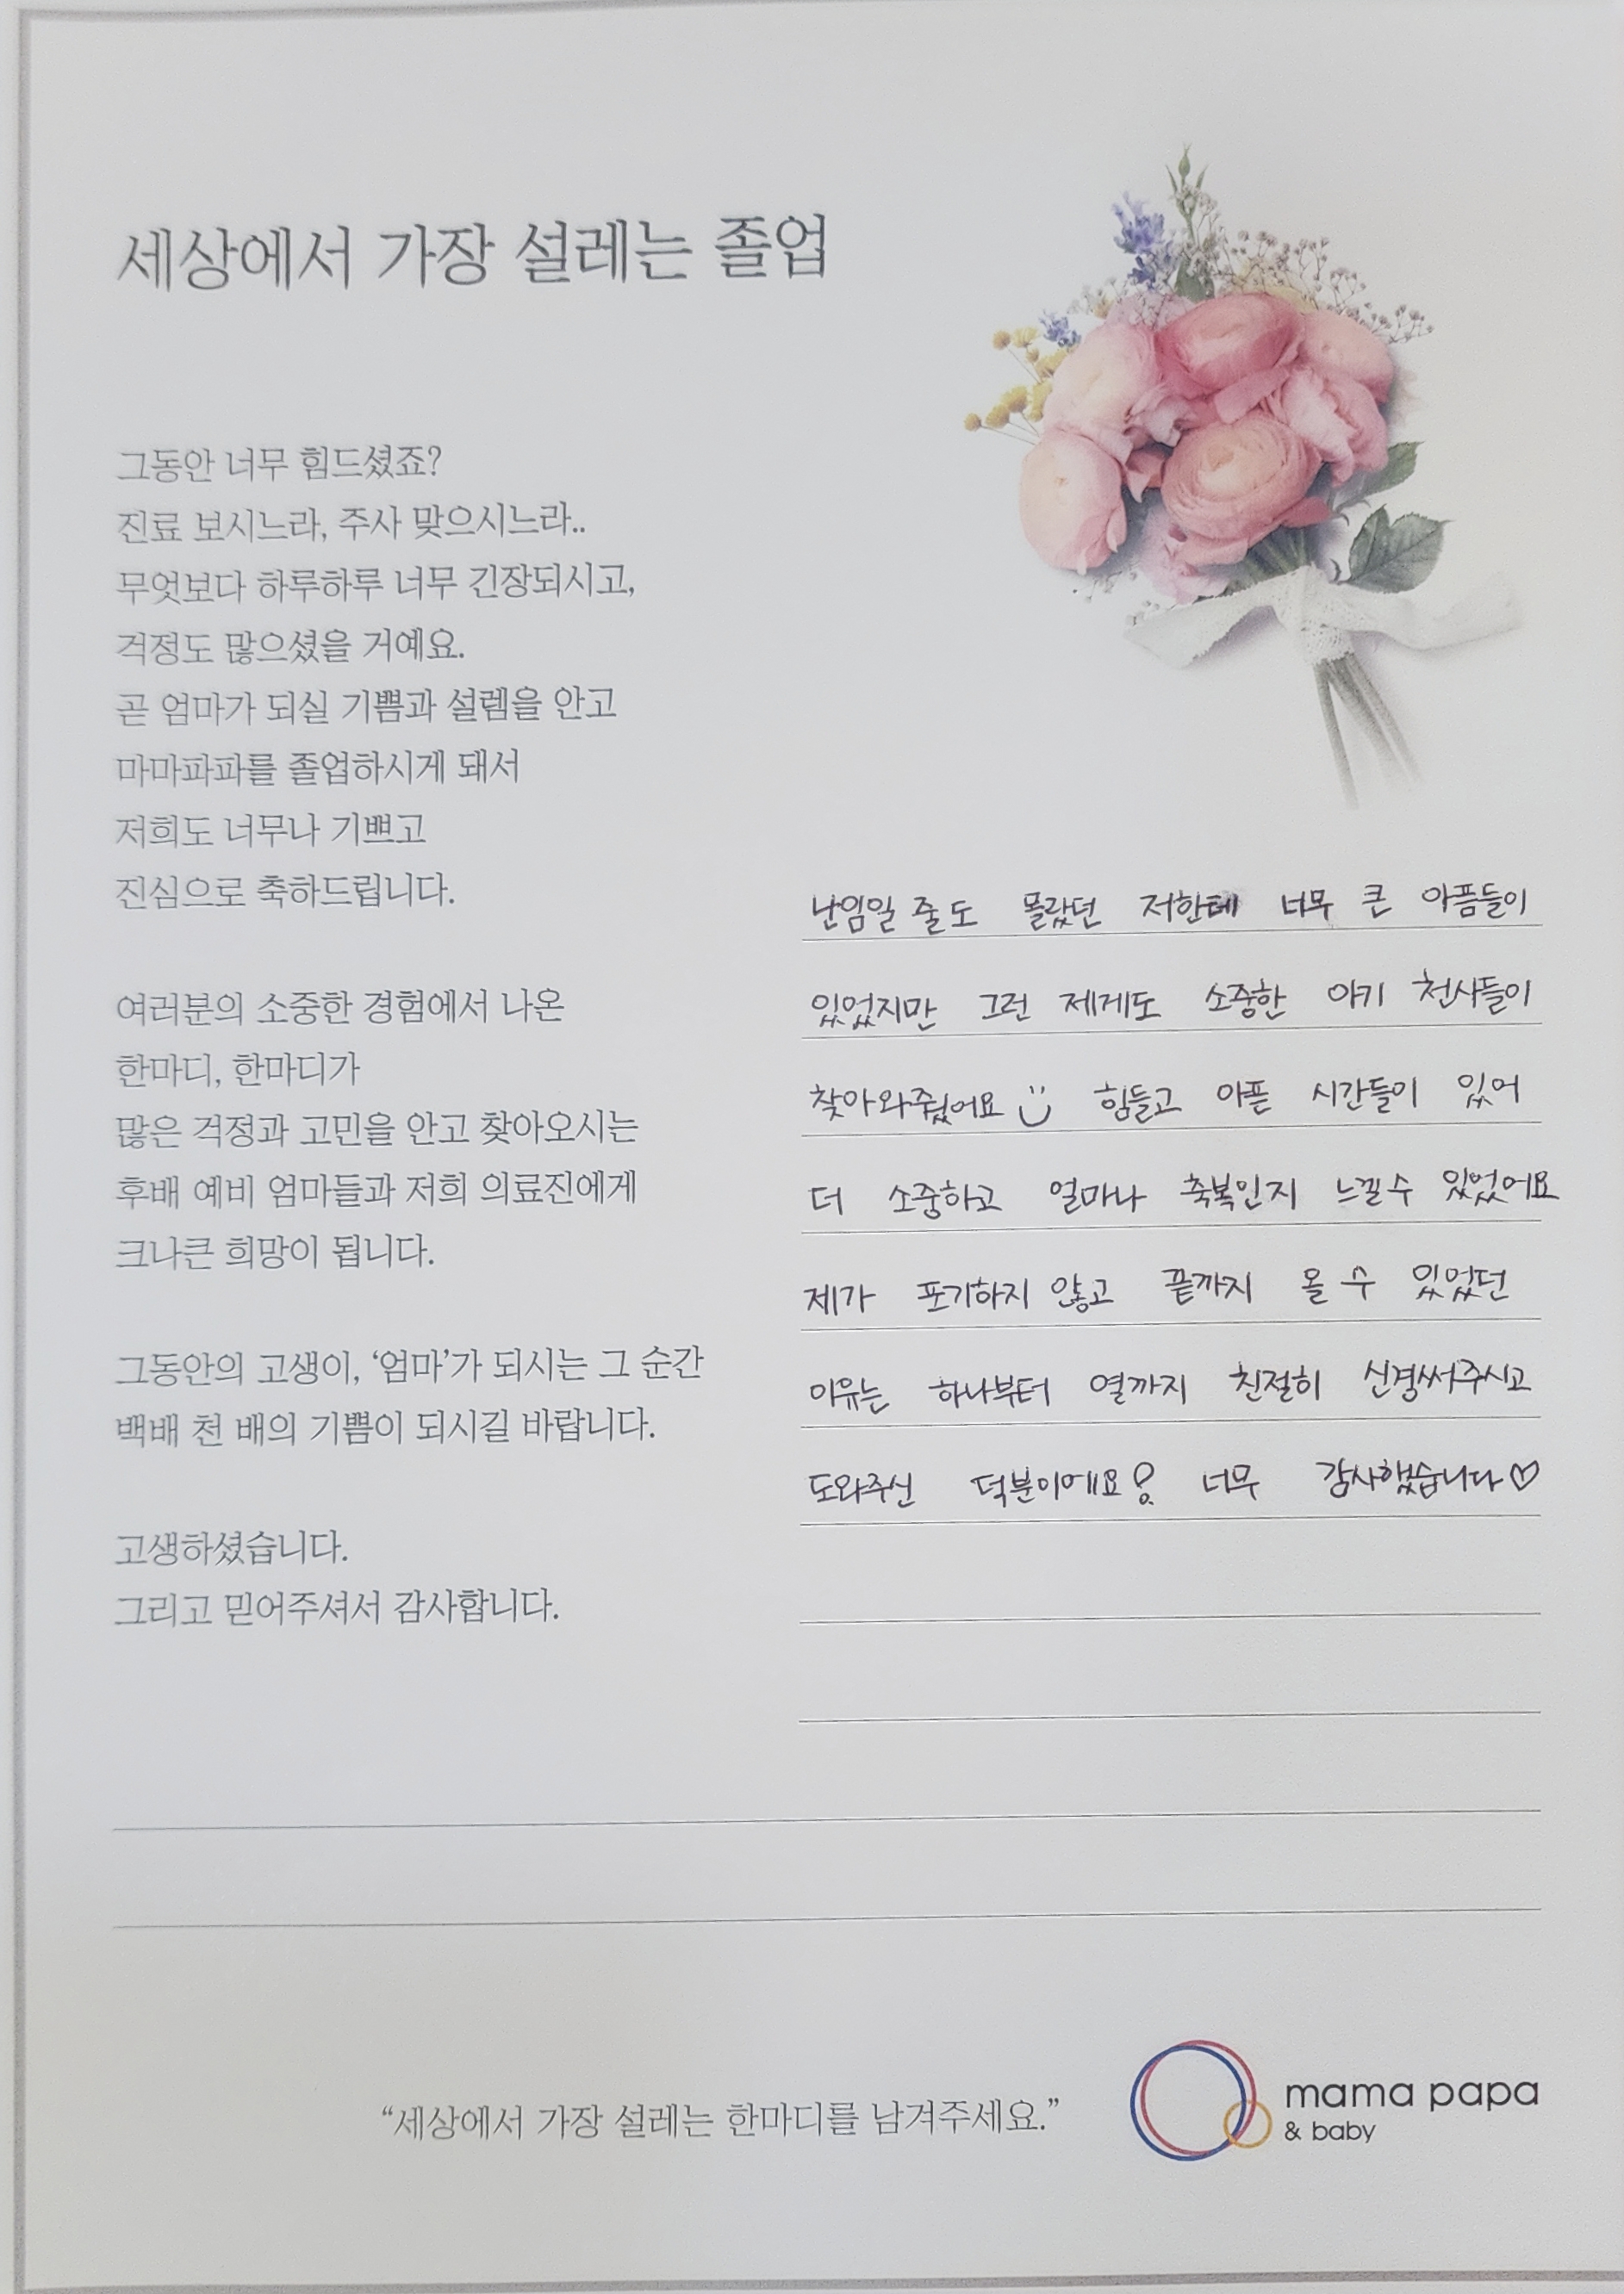 세상에서 가장 설레는 졸업
그동안 너무 힘드셨죠?
진료 보시느라, 주사 맞으시느라..
무엇보다 하루하루 너무 긴장되시고,
걱정도 많으셨을 거예요.
곧 엄마가 되실 기쁨과 설렘을 안고
마마파파를 졸업하시게 돼서
저희도 너무나 기쁘고
진심으로 축하드립니다.
여러분의 소중한 경험에서 나온
한마디, 한마디가
많은 걱정과 고민을 안고 찾아오시는
후배 예비 엄마들과 저희 의료진에게
크나큰 희망이 됩니다.
그동안의 고생이, ‘엄마’가 되시는 그 순간
백배 천 배의 기쁨이 되시길 바랍니다.
고생하셨습니다.
그리고 믿어주셔서 감사합니다.
난임일 줄도 몰랐던 저한테 너무 큰 아픔들이
있었지만 그런 제게도 소중한 아기 천사들이
찾아와줬어요 힘들고 아픈 시간들이 있어
더 소중하고 얼마나 축복인지 느낄수 있었어요
제가 포기하지 않고 끝까지 올 수 있었던
이유는 하나부터 열까지 친절히 신경써주시고
도와주신 덕분이에요! 너무 감사했습니다♡
“세상에서 가장 설레는 한마디를 남겨주세요.”
mama papa
& baby